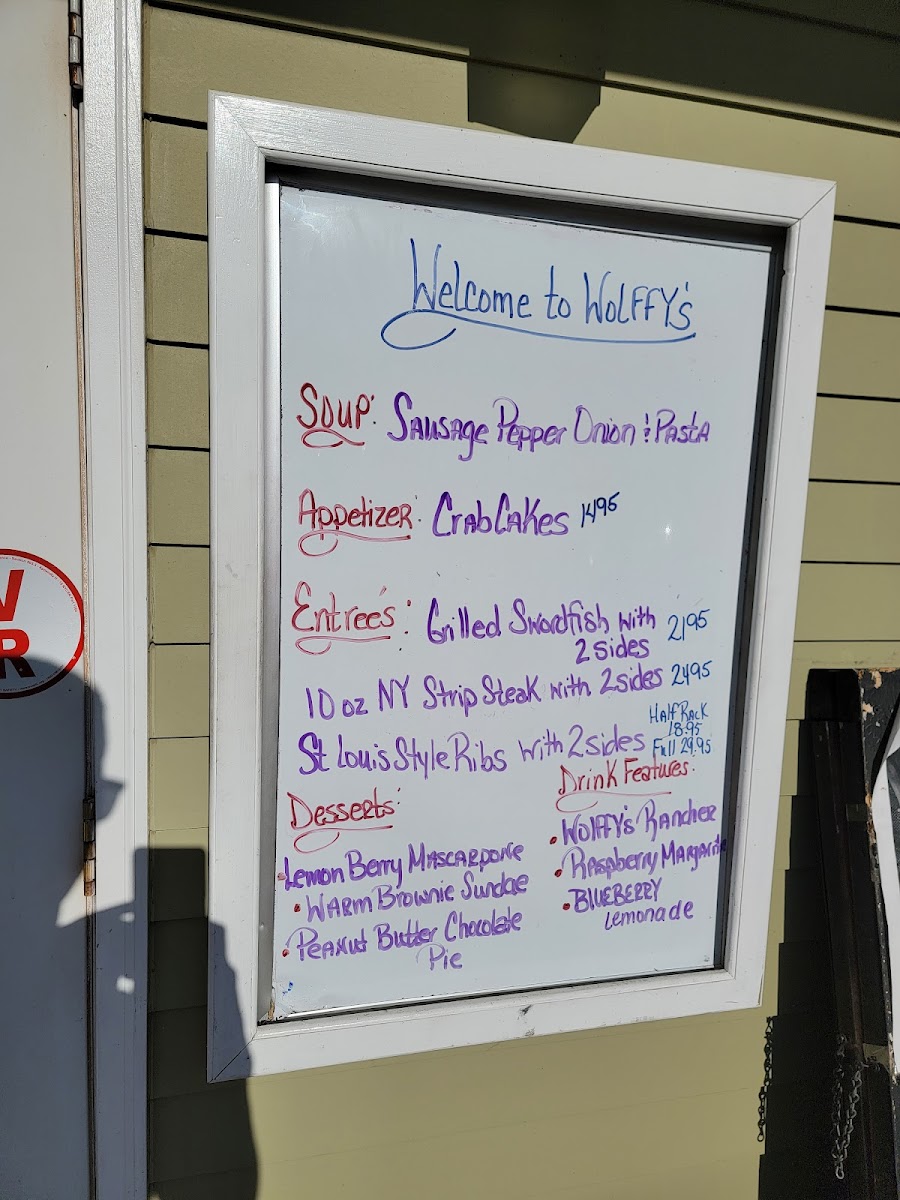 Welcome to WOLFFY's
Soup: Sausage Pepper Onion & Pasta
Appetizer: Crab Cakes 1495
Entree's: Grilled Swordfish with 2195
2 sides
10 oz NY Strip Steak with 2 sides 2495
St Louis Style Ribs with 2 sides Half Rack
18.95
Full 29.95
Desserts:
• Lemon Berry Mascarpone
• Warm Brownie Sundae
• Peanut Butter Chocolate
Pie
Drink Features:
• WOLFFY's Rancher
• Raspberry Margarita
• BLUEBERRY
Lemonade